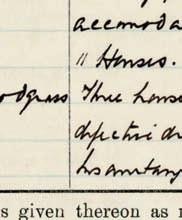 accomoda
" Houses.
odgrass Three house
defective dr
Insanitary
s given thereon as r